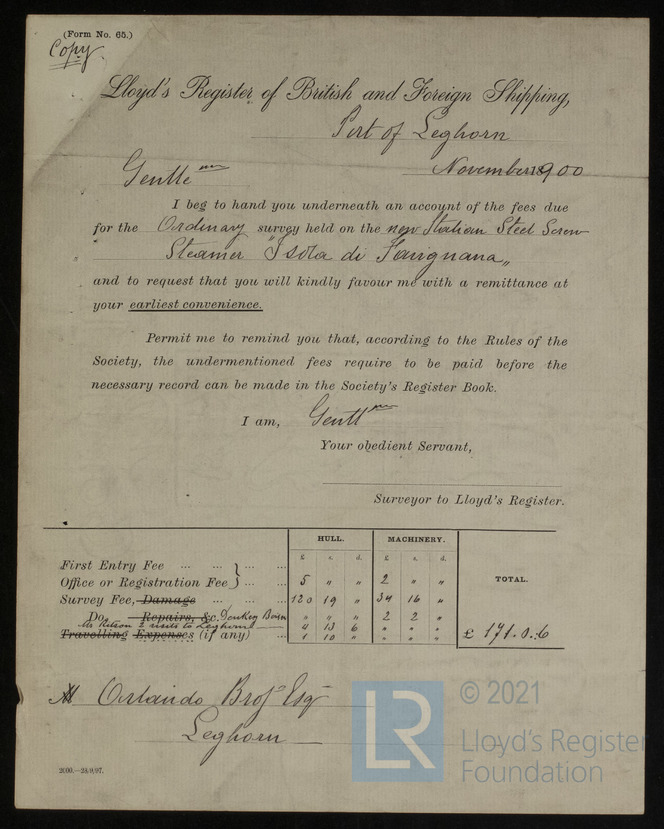 (Form No. 65.)
Copy
Lloyd's Register of British and Foreign Shipping,
Port of Leghorn
November 1900
Gentlemn
I beg to hand you underneath an account of the fees due
for the Ordinary survey held on the new Italian Steel Screw
Steamer "Isola di Favignana"
and to request that you will kindly favour me with a remittance at
your earliest convenience.
Permit me to remind you that, according to the Rules of the
Society, the undermentioned fees require to be paid before the
necessary record can be made in the Society's Register Book.
I am, Gentlmn
Your obedient Servant,
Surveyor to Lloyd's Register.
HULL. MACHINERY.
£ s. d. £ s. d. TOTAL.
First Entry Fee ... ... ... ...
Office or Registration Fee } ... ... 5 " " 2 " "
Survey Fee, Damage ... ... ... 120 19 " 34 16 "
Do. Repairs, &c. Donkey Boiler " " " 2 2 "
2 visits to Leghorn 4 13 6 " " "
Travelling Expenses (if any) 1 10 " " " " £ 171.0.6
Orlando Bros Esq
Leghorn
2000.—28/9/97.
LR
© 2021
Lloyd's Register
Foundation